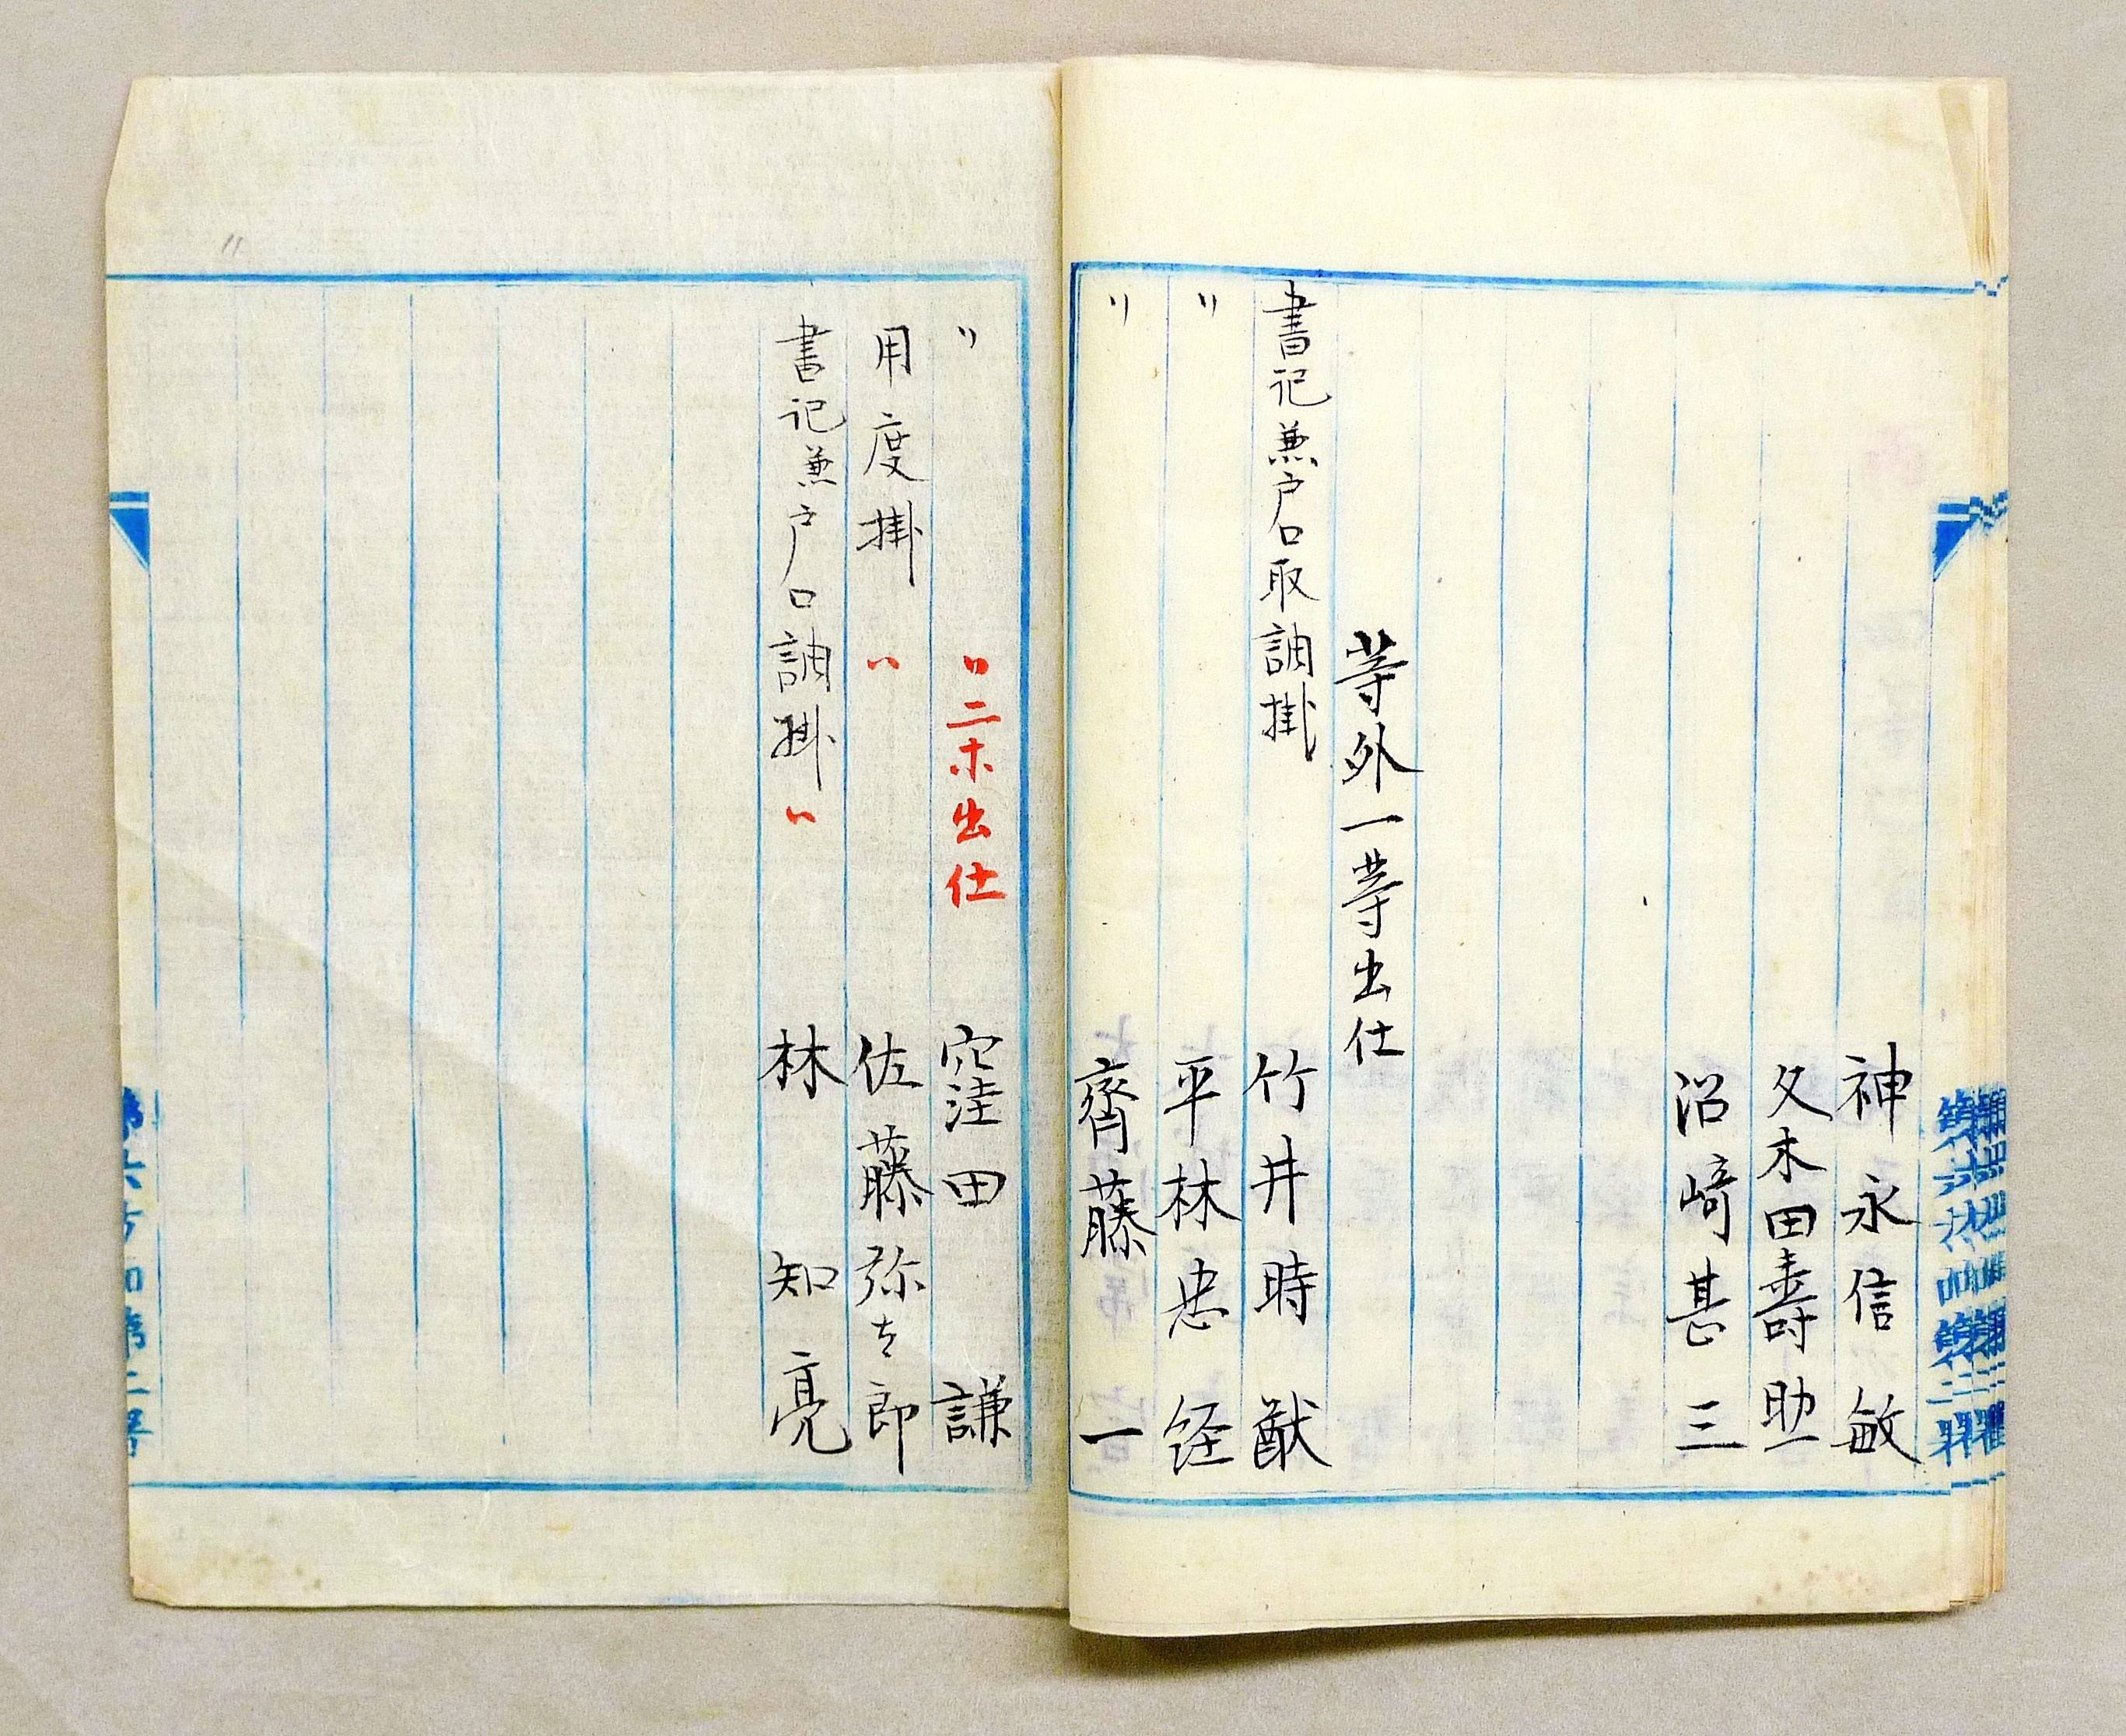 神永信敏
久木田壽助
沼﨑甚三
等外一等出仕
書記兼戸口取調掛 竹井時猷
〃 平林忠経
〃 齊藤一
〃 〃二木出仕 窪田謙
用度掛 〃 佐藤弥七郎
書記兼戸口調掛 〃 林知亮
第六方面第二署